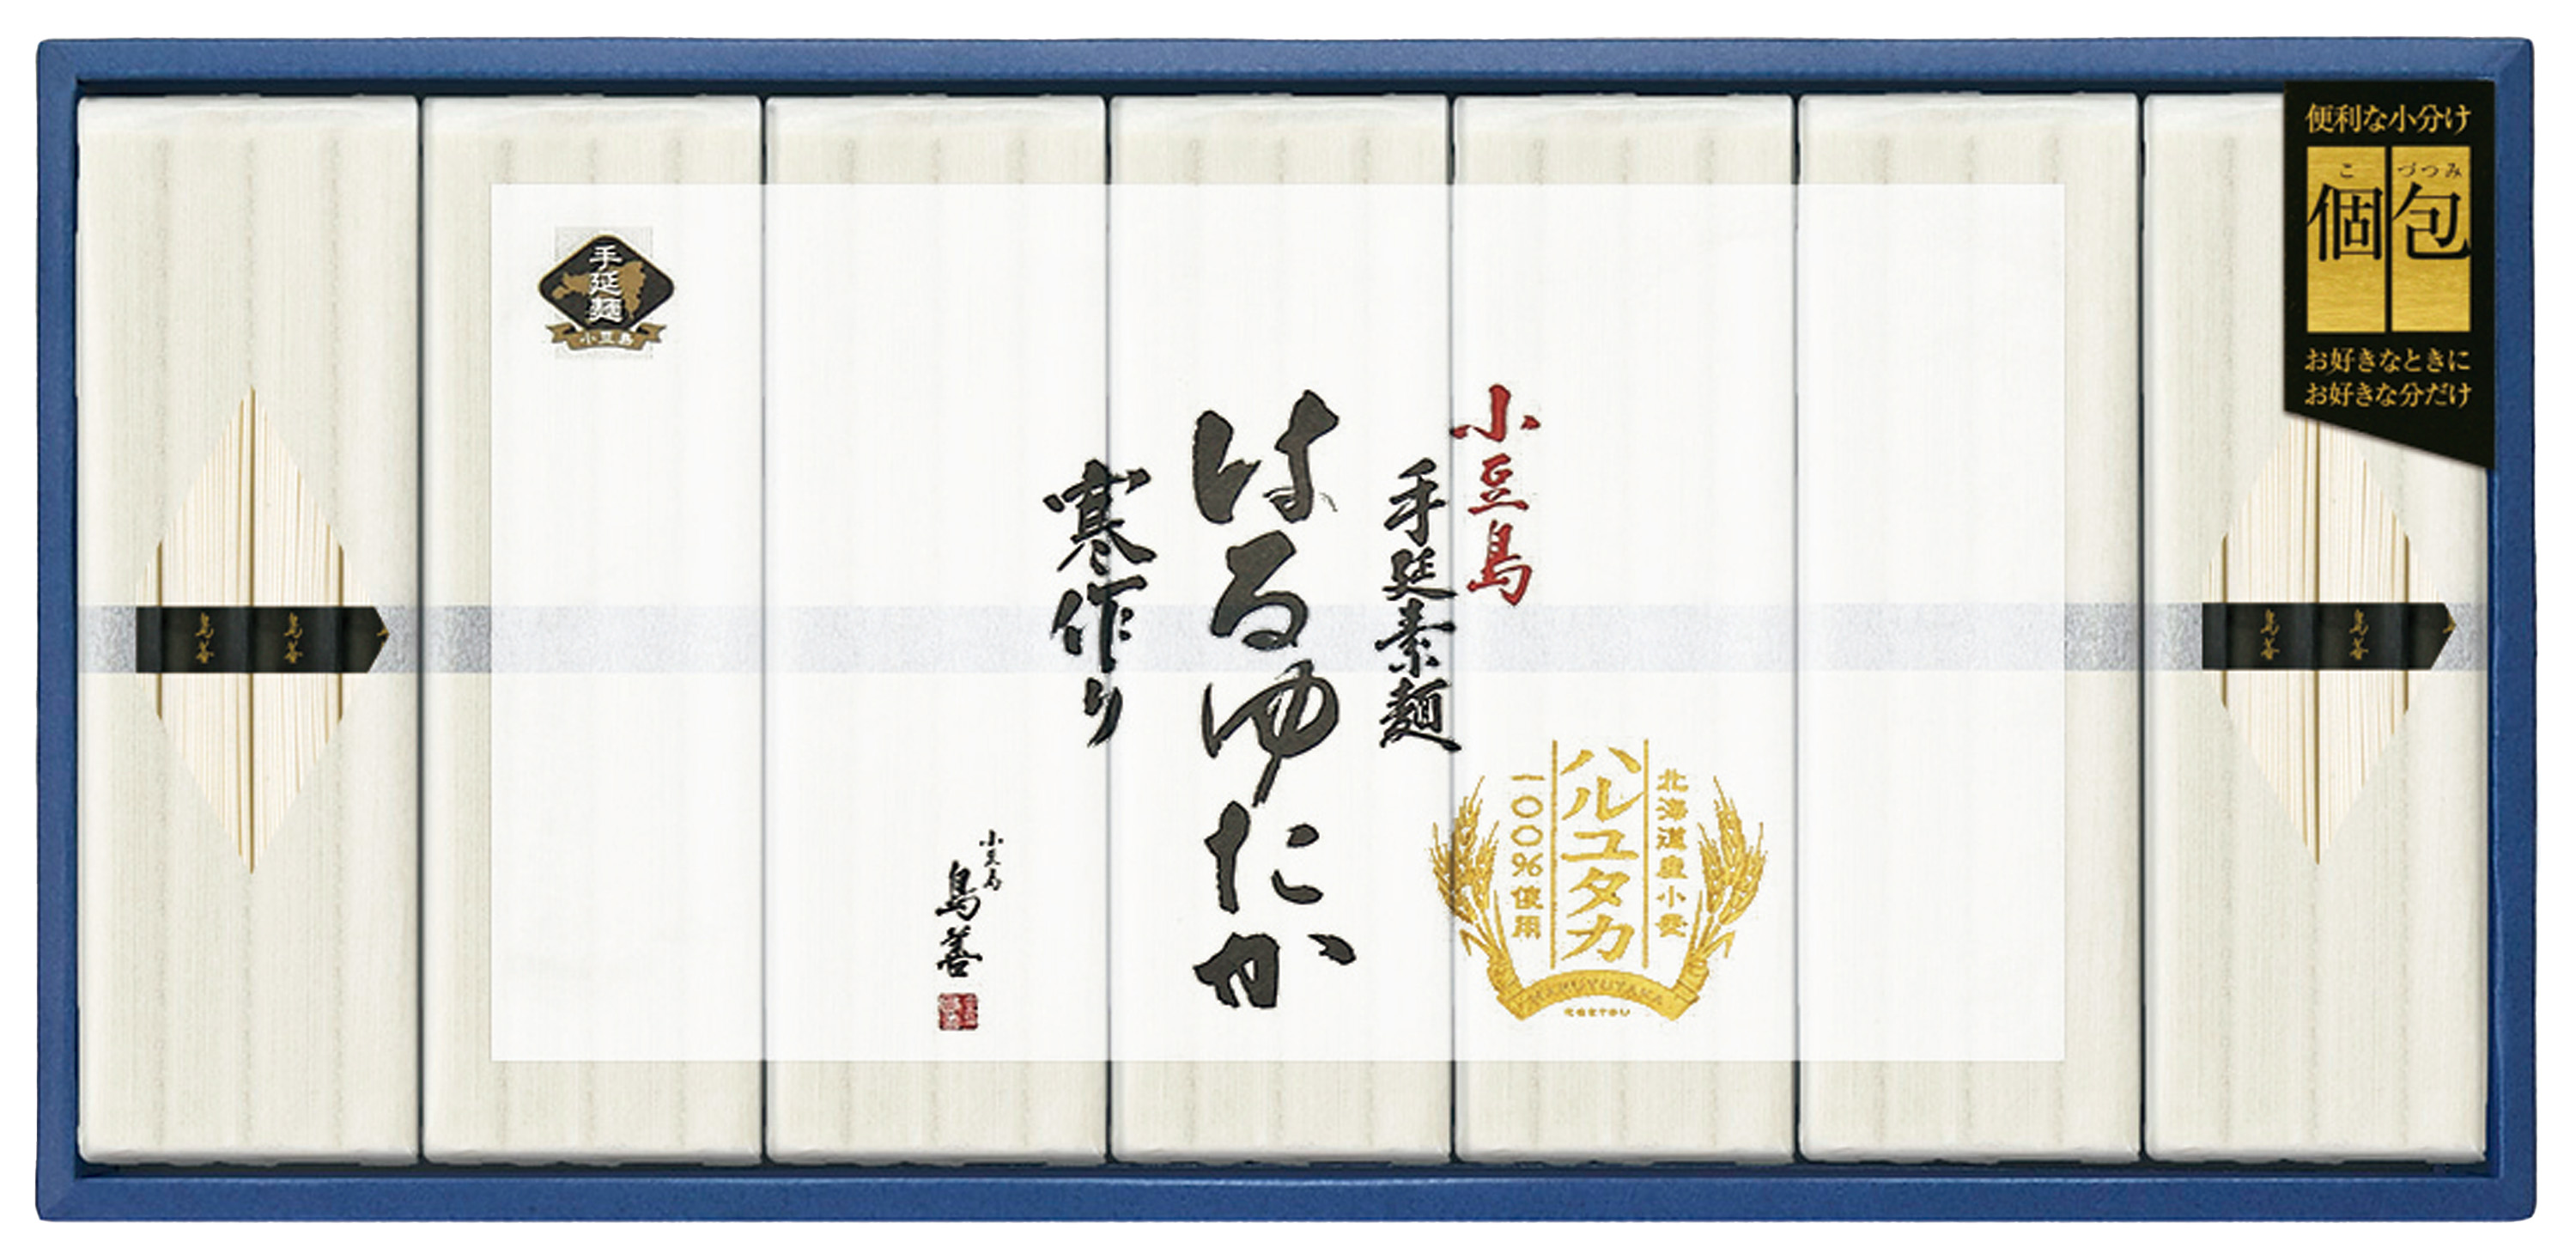 便利な小分け
こ づつみ
個包
お好きなときに
お好きな分だけ
手延麺
小豆島
小豆島
手延素麺
はるゆたか
寒作り
北海道産小麦
ハルユタカ
一〇〇％使用
HARUYUTAKA
小豆島
島善
島善
島善
島善
島善